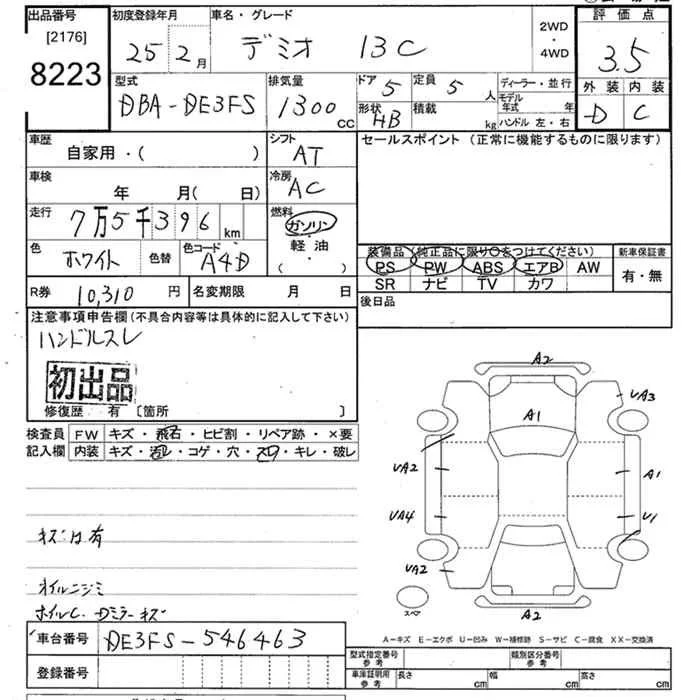 出品番号 初度登録年月 車名・グレード 評価点
[2176] 25 2月 デミオ 13C 2WD・4WD 3.5
8223
型式 排気量 ドア 5 定員 5 人 ディーラー・並行 外装 内装
DBA-DE3FS 1300 cc 形状 HB 積載 kg モデル年式 年 D C
ハンドル 左・右
車歴 シフト セールスポイント (正常に機能するものに限ります)
自家用・( ) AT
車検 冷房
年 月( 日) AC
走行 燃料
7万5千396 km ガソリン
色 色コード 軽油
ホワイト 色替 A4D ( ・ )
装備品 (純正品に限り○をつけてください) 新車保証書
PS PW ABS エアB AW 有・無
SR ナビ TV カワ
R券 10,310 円 名変期限 月 日 後日品
注意事項申告欄 (不具合内容等は具体的に記入して下さい)
ハンドルスレ
初出品
修復歴 有 〔箇所 〕
検査員 FW キズ・飛石・ヒビ割・リペア跡・×要
記入欄 内装 キズ・汚レ・コゲ・穴・スレ・キレ・破レ
A2
UA3
A1
UA2 A1
UA4 U1
UA2
スペア
A2
キズ凹有
オイルニジミ
ホイルC. Dミラーキズ
A-キズ E-エクボ U-凹み W-補修跡 S-サビ C-腐食 XX-交換済
車台番号 DE3FS-546463
型式指定番号 参考 類別区分番号 参考
登録番号
車庫証明用 参考 長さ cm 幅 cm 高さ cm